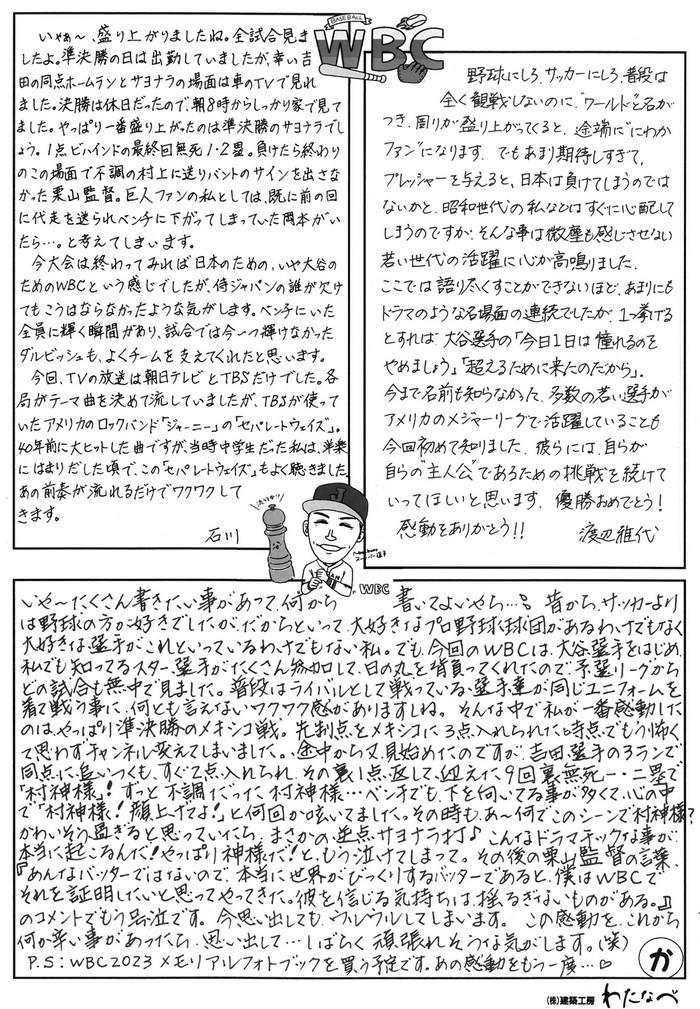 BASEBALL
WBC
いやぁ～、盛り上がりましたね。全試合見ま
したよ。準決勝の日は出勤していましたが、幸い吉
田の同点ホームランとサヨナラの場面は車のTVで見れ
ました。決勝は休日だったので、朝8時からしっかり家で見て
ました。やっぱり一番盛り上がったのは準決勝のサヨナラでし
ょう。1点ビハインドの最終回無死1・2塁。負けたら終わり
のこの場面で不調の村上に送りバントのサインを出さな
かった栗山監督。巨人ファンの私としては、既に前の回
に代走を送られベンチに下がってしまっていた岡本がい
たら…。と考えてしまいます。
今大会は終わってみれば日本のための、いや大谷の
ためのWBCという感じでしたが、侍ジャパンの誰が欠け
てもこうはならなかったような気がします。ベンチにいた
全員に輝く瞬間があり、試合では今一つ輝けなかった
ダルビッシュも、よくチームを支えてくれたと思います。
今回、TVの放送は朝日テレビとTBSだけでした。各
局がテーマ曲を決めて流していましたが、TBSが使って
いたアメリカのロックバンド「ジャーニー」の「セパレートウェイズ」。
40年前に大ヒットした曲ですが、当時中学生だった私は、洋楽
にはまりだした頃で、この「セパレートウェイズ」もよく聴きました。
あの前奏が流れるだけでワクワクして
きます。
石川
野球にしろ、サッカーにしろ、普段は
全く観戦しないのに、“ワールド”と名が
つき、周りが盛り上がってくると、途端に“にわか
ファン”になります。でもあまり期待しすぎて、
プレッシャーを与えると、日本は負けてしまうのでは
ないかと、昭和世代の私などはすぐに心配して
しまうのですが、そんな事は微塵も感じさせない
若い世代の活躍に心が高鳴りました。
ここでは語り尽くすことができないほど、あまりにも
ドラマのような名場面の連続でしたが、1つ挙げる
とすれば、大谷選手の「今日1日は憧れるのを
やめましょう」「超えるために来たのだから」。
今まで名前も知らなかった、多数の若い選手が
アメリカのメジャーリーグで活躍していることも
今回初めて知りました。彼らには、自らが
自らの“主人公”であるための挑戦を続けて
いってほしいと思います。優勝おめでとう！
感動をありがとう！！ 渡辺雅代
WBC
いや～たくさん書きたい事があって、何から書いてよいやら…。昔から、サッカーより
は野球の方が好きでしたが、だからといって、大好きなプロ野球球団があるわけでもなく
大好きな選手がこれといっているわけでもない私。でも、今回のWBCは、大谷選手をはじめ、
私でも知ってるスター選手がたくさん参加して、日の丸を背負ってくれたので、予選リーグから
どの試合も無中で見ました。普段はライバルとして戦っている選手達が同じユニフォームを
着て戦う事に、何とも言えないワクワク感がありますしね。そんな中で私が一番感動した
のは、やっぱり準決勝のメキシコ戦。先制点をメキシコに3点入れられた時点でもう怖く
て思わずチャンネル変えてしまいました。途中から又見始めたのですが、吉田選手の3ランで
同点に追いつくも、すぐ2点入れられ、その裏1点返して、迎えた9回裏無死一・二塁で
「村神様」！ずっと不調だった村神様…ベンチでも、下を向いてる事が多くて、心の中
で「村神様！顔上げてよ！」と何回か呟いてました。その時も、あ～何でこのシーンで村神様？
かわいそう過ぎると思っていたら、まさかの逆点サヨナラ打♪こんなドラマチックな事が
本当に起こるんだ！やっぱり神様だ！と、もう泣けてしまって。その後の栗山監督の言葉、
『あんなバッターではないので、本当に世界がびっくりするバッターであると、僕はWBCで
それを証明したいと思ってやってきた。彼を信じる気持ちは、揺るぎないものがある。』
のコメントでもう号泣です。今思い出しても、ウルウルしてしまいます。この感動を、これから
何か辛い事があったら、思い出して…しばらく頑張れそうな気がします。(笑)
P.S：WBC2023メモリアルフォトブックを買う予定です。あの感動をもう一度…♡
か
(株)建築工房 わたなべ